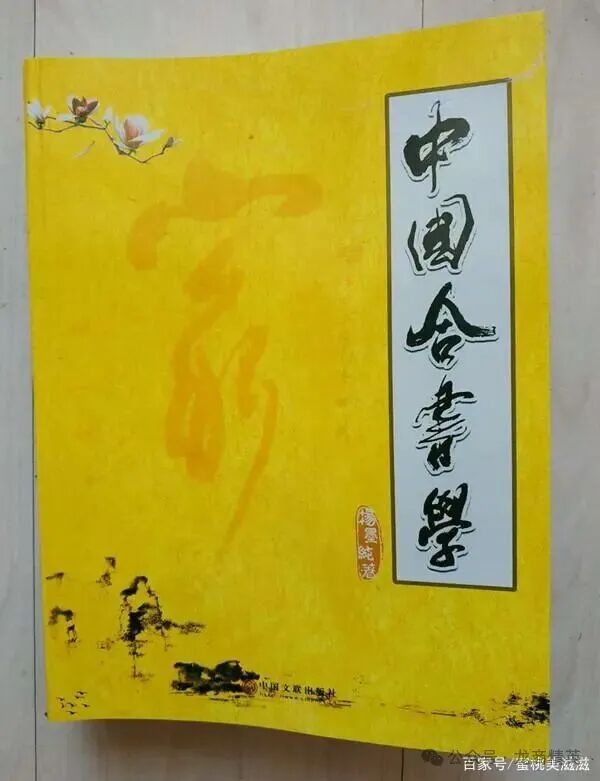 中国合書學
楊墨純著
中国文联出版社
公众号·龙商精英...
百家号/蜜桃美滋滋